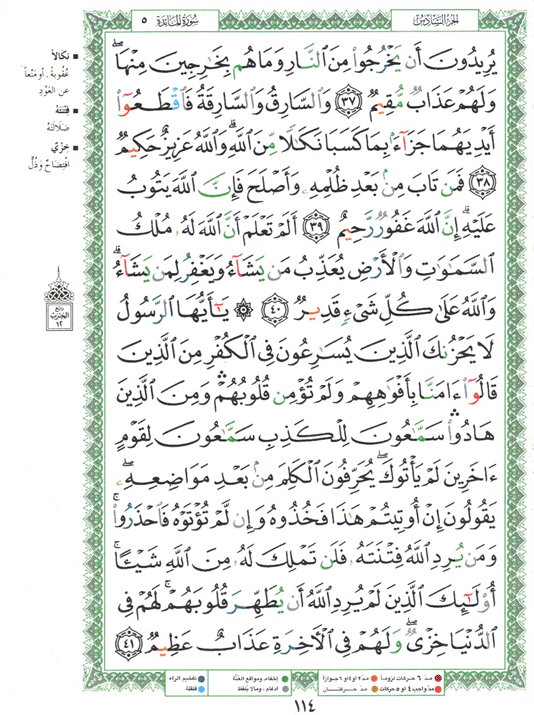 سُورَةُ المَائِدَة ٥
الجُزءُ السَّادِسُ
يُرِيدُونَ أَن يَخْرُجُوا۟ مِنَ ٱلنَّارِ وَمَا هُم بِخَٰرِجِينَ مِنْهَا ۖ
وَلَهُمْ عَذَابٌ مُّقِيمٌ ٣٧ وَٱلسَّارِقُ وَٱلسَّارِقَةُ فَٱقْطَعُوٓا۟
أَيْدِيَهُمَا جَزَآءًۢ بِمَا كَسَبَا نَكَٰلًا مِّنَ ٱللَّهِ ۗ وَٱللَّهُ عَزِيزٌ حَكِيمٌ
٣٨ فَمَن تَابَ مِنۢ بَعْدِ ظُلْمِهِۦ وَأَصْلَحَ فَإِنَّ ٱللَّهَ يَتُوبُ
عَلَيْهِ ۗ إِنَّ ٱللَّهَ غَفُورٌ رَّحِيمٌ ٣٩ أَلَمْ تَعْلَمْ أَنَّ ٱللَّهَ لَهُۥ مُلْكُ
ٱلسَّمَٰوَٰتِ وَٱلْأَرْضِ يُعَذِّبُ مَن يَشَآءُ وَيَغْفِرُ لِمَن يَشَآءُ ۗ
وَٱللَّهُ عَلَىٰ كُلِّ شَىْءٍ قَدِيرٌ ٤٠ ۞ يَٰٓأَيُّهَا ٱلرَّسُولُ
لَا يَحْزُنكَ ٱلَّذِينَ يُسَٰرِعُونَ فِى ٱلْكُفْرِ مِنَ ٱلَّذِينَ
قَالُوٓا۟ ءَامَنَّا بِأَفْوَٰهِهِمْ وَلَمْ تُؤْمِن قُلُوبُهُمْ ۛ وَمِنَ ٱلَّذِينَ
هَادُوا۟ ۛ سَمَّٰعُونَ لِلْكَذِبِ سَمَّٰعُونَ لِقَوْمٍ
ءَاخَرِينَ لَمْ يَأْتُوكَ ۖ يُحَرِّفُونَ ٱلْكَلِمَ مِنۢ بَعْدِ مَوَاضِعِهِۦ ۖ
يَقُولُونَ إِنْ أُوتِيتُمْ هَٰذَا فَخُذُوهُ وَإِن لَّمْ تُؤْتَوْهُ فَٱحْذَرُوا۟ ۚ
وَمَن يُرِدِ ٱللَّهُ فِتْنَتَهُۥ فَلَن تَمْلِكَ لَهُۥ مِنَ ٱللَّهِ شَيْـًٔا ۚ
أُو۟لَٰٓئِكَ ٱلَّذِينَ لَمْ يُرِدِ ٱللَّهُ أَن يُطَهِّرَ قُلُوبَهُمْ ۚ لَهُمْ فِى
ٱلدُّنْيَا خِزْىٌ ۖ وَلَهُمْ فِى ٱلْءَاخِرَةِ عَذَابٌ عَظِيمٌ ٤١
نَكَالاً
عُقُوبَةً. أو مَنْعاً
عن العَوْدِ
فِتْنَتَهُ
ضَلَالَتَهُ
خِزْيٌ
افْتِضَاحٌ وَذُلٌّ
ربع
الحزب
١٢
مدّ ٦ حركات لزوماً مدّ ٢ أو ٤ أو ٦ جوازاً إخفاء، ومواقع الغُنَّة تفخيم الراء
مدّ واجب ٤ أو ٥ حركات مدّ حركتان ادغام، وما لا يُلفَظ قلقلة
١١٤